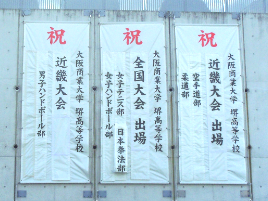 祝
大阪商業大学 堺高等学校
近畿大会 出場
空手道部
柔道部
祝
大阪商業大学 堺高等学校
全国大会 出場
女子テニス部 日本拳法部
女子ハンドボール部
祝
大阪商業大学 堺高等学校
近畿大会
男子ハンドボール部